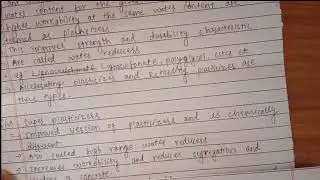 water content for the given
higher workability at the same water content are
termed as plasticizers.
This improves strength and durability characteristic.
Are called water reducers
eg Lignosulphonate, polyglycol esters etc
Accelerating plasticizers and Retarding plasticizers are
their types.
Super plasticizers
Improved version of plasticizers and is chemically
different
Also called high range water reducers
Increases workability and reduces segregation and
concrete.